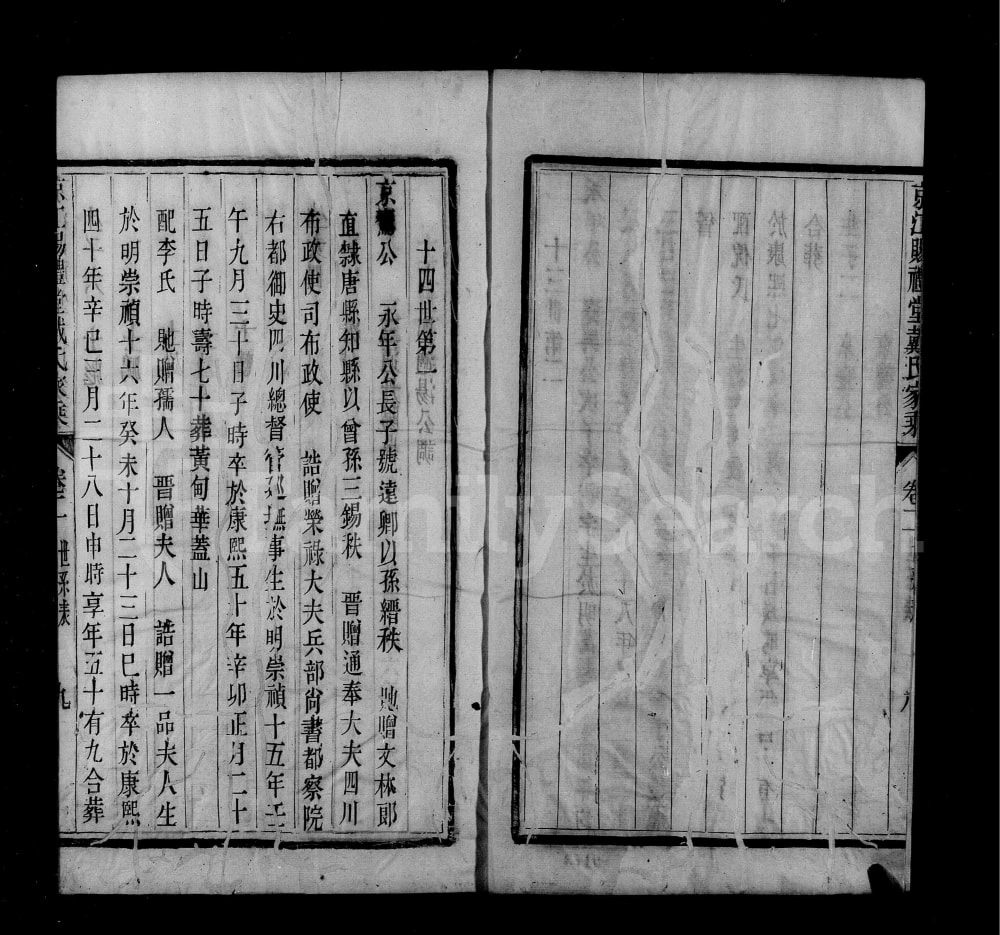 京江賜禮堂戴氏家乘
卷二
八
十四世第一
京公 永年公長子號遠卿以孫縉秩 貤贈文林郎
直隸唐縣知縣以曾孫三錫秩 晉贈通奉大夫四川
布政使司布政使 誥贈榮祿大夫兵部尚書都察院
右都御史四川總督管巡撫事生於明崇禎十五年壬
午九月三十日子時卒於康熙五十年辛卯正月二十
五日子時壽七十葬黃甸華蓋山
配李氏 貤贈孺人 晉贈夫人 誥贈一品夫人生
於明崇禎十六年癸未十月二十三日巳時卒於康熙
四十年辛巳二月二十八日申時享年五十有九合葬
京江賜禮堂戴氏家乘
卷二
世系錄
九
FamilySearch